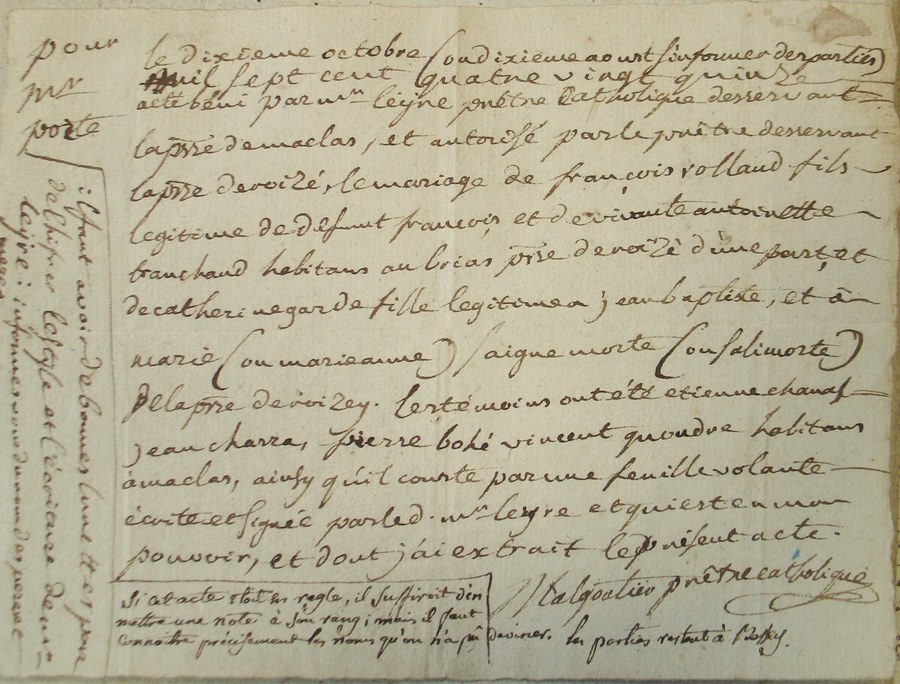 pour
mr
porte
le dixieme octobre (ou dixieme aoust s'informer des parties)
mil sept cent quatre vingt quinze
acté béni par mr leyre prêtre Catholique desservant
la psse de maclas, et autorisé par le prêtre desservant
la psse de roizé, le mariage de françois rollaud fils
legitime de défunt françois et de vivante antoinette
tranchand habitans au brias psse de roizé d'une part, et
de catherine garde fille legitime a jean baptiste, et à
marie (ou marieanne) saignemorte (ou salimorte)
de la psse de roizey. les témoins ont étés etienne chanas
jean charra, pierre bohé vincent quondre habitans
à maclas, ainsy qu'il conste par une feuille volante
écrite et signée par led. mr leyre et qui est en mon
pouvoir, et dont j'ai extrait le présent acte.
prêtre catholique
il faut avoir de bonnes lunettes pour
dechifrer le style et l'écriture de mr
leyre: informes vous du nom des peres et
meres
si cet acte etoit en regle, il suffiroit d'en
mettre une note à son rang; mais il faut
connoitre précisement les noms qu'on n'a pu deviner. les parties restent à